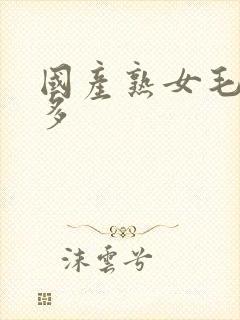 國產熟女毛
多
沫雲兮